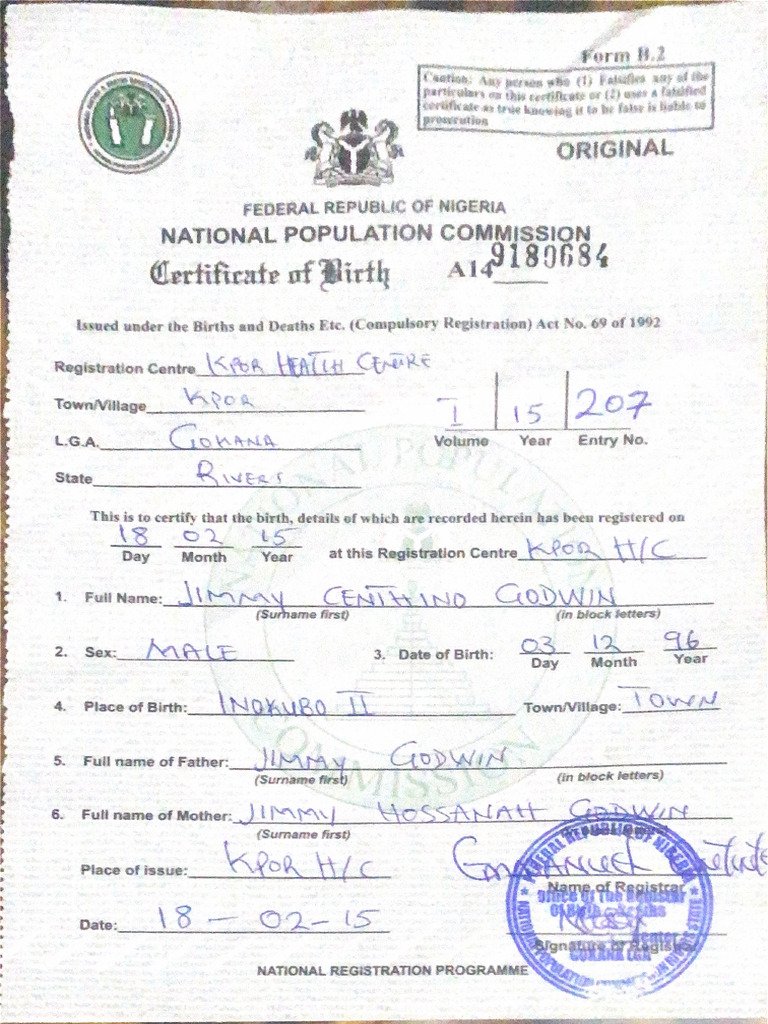 Form B.2
Caution: Any person who (1) Falsifies any of the
particulars on this certificate or (2) uses a falsified
certificate as true knowing it to be false is liable to
prosecution
ORIGINAL
FEDERAL REPUBLIC OF NIGERIA
NATIONAL POPULATION COMMISSION
Certificate of Birth A14 9180684
Issued under the Births and Deaths Etc. (Compulsory Registration) Act No. 69 of 1992
Registration Centre KPOR HEATLH CENTRE
Town/Village KPOR
I 15 207
L.G.A. GOKANA Volume Year Entry No.
State RIVERS
NATIONAL POPULATION COMMISSION
This is to certify that the birth, details of which are recorded herein has been registered on
18 02 15
Day Month Year at this Registration Centre KPOR H/C
1. Full Name: JIMMY CENTHINO GODWIN
(Surname first) (in block letters)
2. Sex: MALE 3. Date of Birth: 03 12 96
Day Month Year
4. Place of Birth: INOKUBO II Town/Village: TOWN
5. Full name of Father: JIMMY GODWIN
(Surname first) (in block letters)
6. Full name of Mother: JIMMY HOSSANAH GODWIN
(Surname first)
Place of issue: KPOR H/C
Name of Registrar
Date: 18 - 02 - 15
Signature of Registrar
FEDERAL REPUBLIC OF NIGERIA
GOKANA LGA
NATIONAL REGISTRATION PROGRAMME